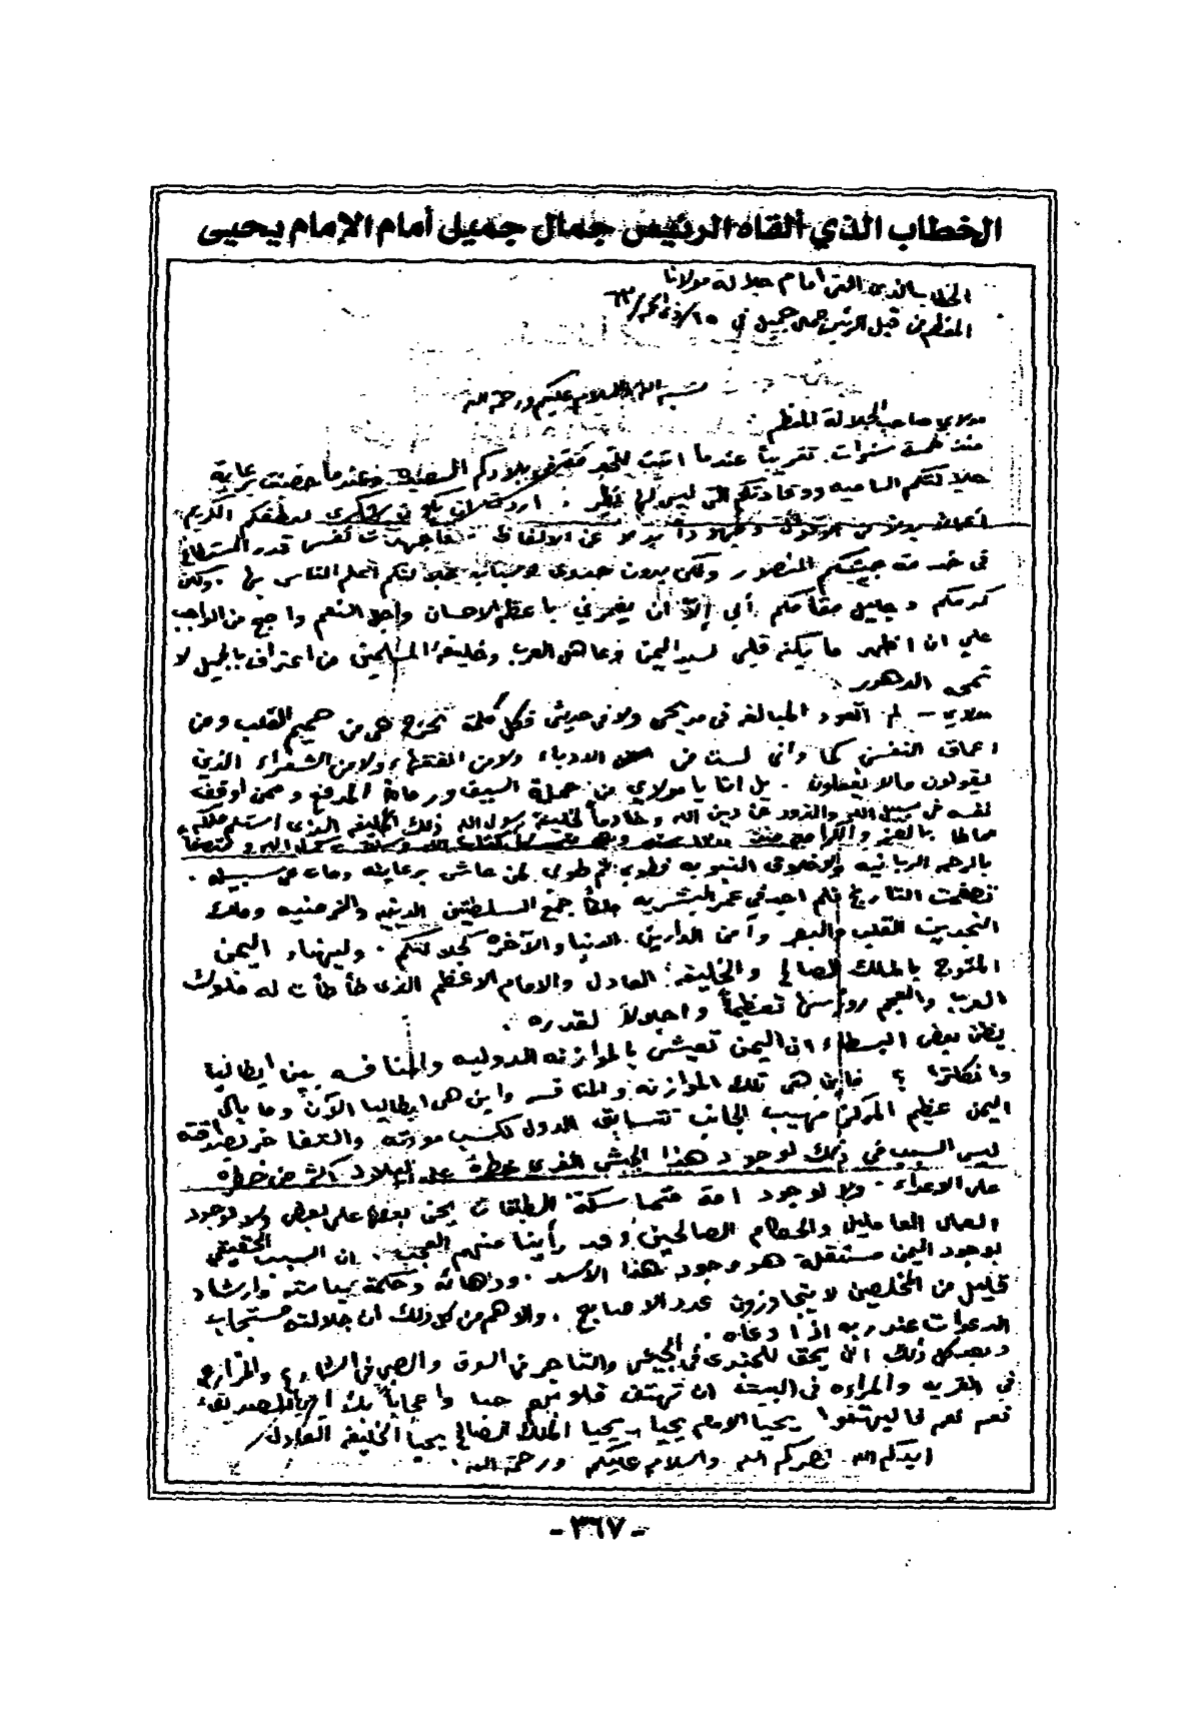 الخطاب الذي ألقاه الرئيس جمال جميل أمام الإمام يحيى
الخطاب الذي القي امام جلالة مولانا
المعظم من قبل الرئيس جمال جميل في ١٥/ذي الحجة/٦٣
بسم الله والسلام عليكم ورحمة الله
مولاي صاحب الجلالة المعظم
منذ خمسة سنوات تقريباً عندما اتيت بلادكم السعيدة وعندما حضيت برعاية
جلالتكم الساميه التي ليس لها نظير . اردت ان يكون شكري لعطفكم الكريم
بدلا من الاقوال وجهوداً بدلا عن الالفاظ فأجهدت نفسي قدر المستطاع
في خدمة جيشكم المنصور ولكن بدون جدوى لاسباب جلالتكم اعلم الناس بها . ولكن
كرمكم وجليل مقامكم أبى إلا ان يغمرني باعظم الاحسان وأجل النعم واجع من الواجب
علي ان اظهر ما يكنه قلبي لسيد اليمن وعاهل العرب وخليفة المسلمين من اعتراف بالجميل لا
تمحه الدهور .
مولاي - لم اتعود المبالغه في مديحي ولا في حديثي فكل كلمة تخرج هي من صميم القلب ومن
اعماق النفس كما واني لست من الادباء ولا من الفقهاء ولا من الشعراء الذين
يقولون مالا يفعلون . بل انا يا مولاي من حملة السيف ورماة المدفع وممن اوقف
نفسه في سبيل الله والذود عن دين الله وخادماً لخليفة رسول الله ذلك الخليفه الذي استلم ملكه
محاطا بالعز والكرامه منذ
بالرحم الربانيه والاخلاق النبويه فطوبى ثم طوبى لمن عاش برعايته ومات في سبيله .
تصفحت التاريخ فلم اجد في عمر البشريه ملكاً جمع السلطتين الدينيه والزمنيه وملك
القلب والبصر وأمن الدارين الدنيا والآخره كجلالتكم . وليهناء اليمن
المتوج بالملك الصالح والخليفه العادل والامام الاعظم الذي طأطأت له ملوك
العرب والعجم رؤسها تعظيماً واجلالاً لقدره .
يظن بعض البسطاء ان اليمن تعيش بالموازنه الدوليه والمنافسه بين ايطاليا
وانكلترا ؟ فاين هي تلك الموازنه والمنافسه واين هي ايطاليا الآن وما بال
اليمن عظيم المركز مهيب الجانب تتسابق الدول لكسب مودته والتفاخر بصداقته
ليس السبب في ذلك لوجود هذا الجيش الذي خطره على البلاد اكثر من خطره
على الاعداء . ولا لوجود امة متماسكة الطبقات يحن بعضها على بعض ولا لوجود
العمال العاملين والحكام الصالحين وقد رأينا منهم العجب . ان السبب الحقيقي
لوجود اليمن مستقلة هو وجود هذا الأسد . ودهائه وحكمة سياسته وارشاد
قليل من المخلصين لا يتجاوزون عدد الاصابع . والاهم من كل ذلك ان جلالته مستجاب
الدعوات عند ربه اذا دعاه .
وبعد كل ذلك الا يحق للجندي في الجيش والتاجر في السوق والصبي في الشارع والمزارع
في القريه والمراءه في البيت ان تهتف قلوبهم حبا واعجاباً بك
نعم نعم فاليهتفوا يحيا الامام يحيا - يحيا الملك الصالح يحيا الخليفه العادل
ايدكم الله نصركم الله والسلام عليكم ورحمة الله .
- ٣٦٧ -